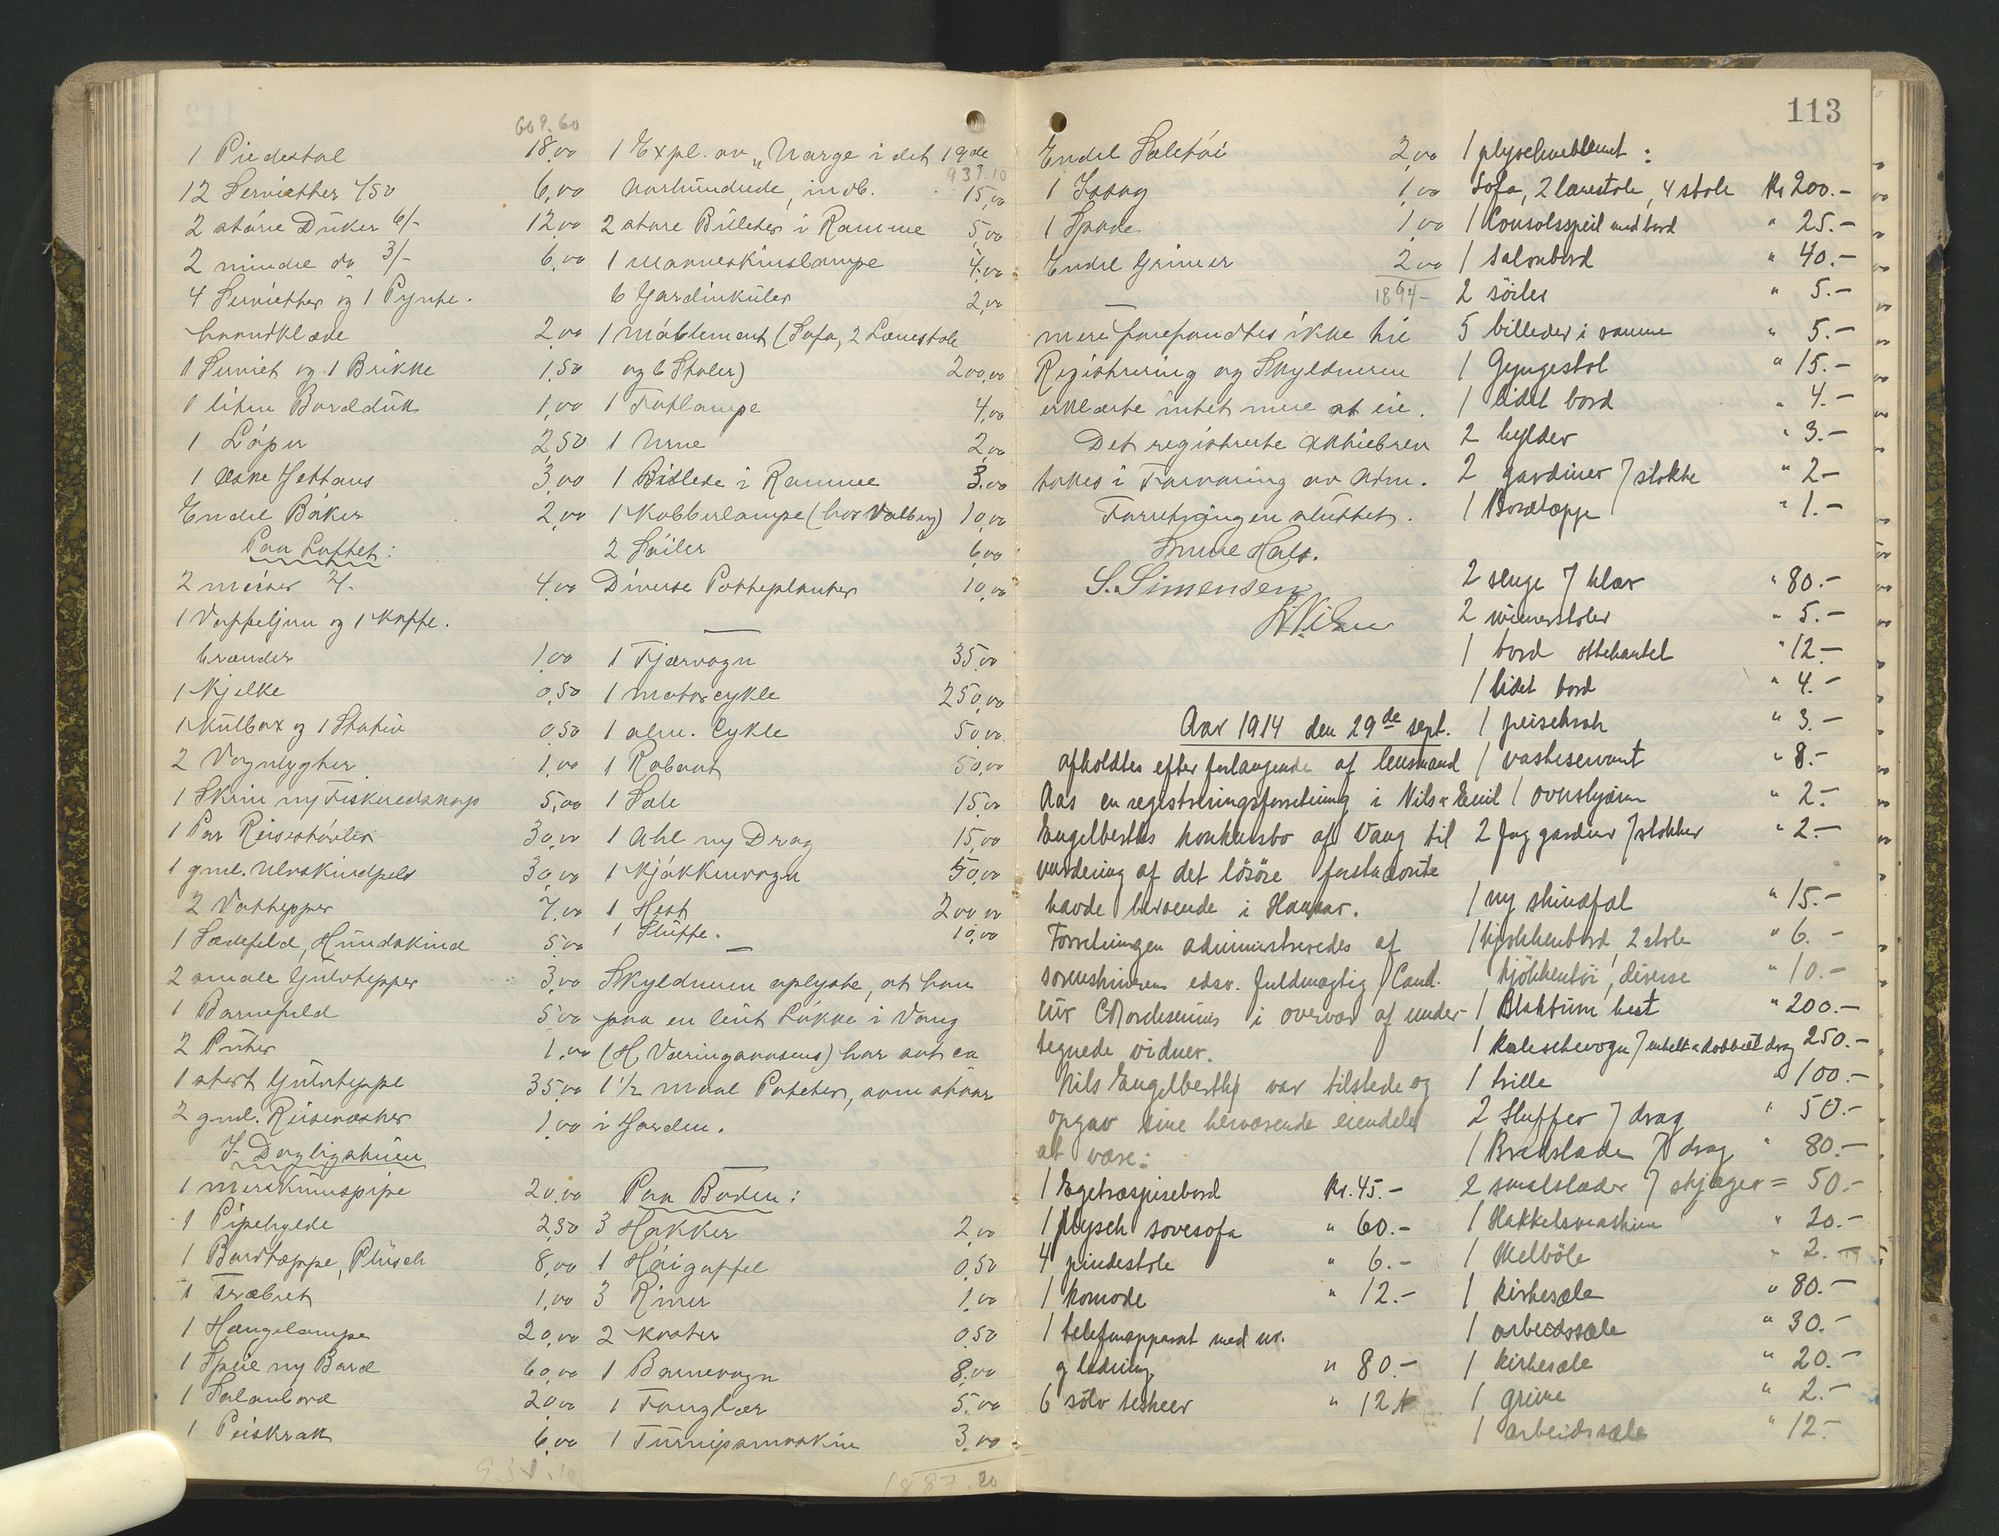 113
609.60
1 Piedestal 18,00
12 Servietter /50 6,00
2 större Duker 6/- 12,00
2 mindre do 3/- 6,00
4 Servietter og 1 Pynte-
haandklæde 2,00
1 Serviet og 1 Brikke 1,50
1 liten Bordduk 1,00
1 Löper 2,50
1 Æske 3,00
Endel Böker 2,00
Paa Loftet:
2 2/- 4,00
1 Vaffeljern og 1 Kaffe-
brænder 1,00
1 Kjelke 0,50
1 Kulbox og 1 Stativ 0,50
2 Vognlygter 1,00
1 Skrin m/ Fiskeredskap 5,00
1 Par Reisestövler 30,00
1 gml. Ulveskindpels 30,00
2 Vattepper 7,00
1 Sædefeld, Hundskind 5,00
2 smale Gulvtepper 3,00
1 Barnefeld 5,00
2 Puter 1,00
1 stort Gulvteppe 35,00
2 gml. Reisevæsker 1,00
I Dagligstuen
1 Merskumspipe 20,00
1 Pipehylde 2,50
1 Bordtæppe, Plüsch 8,00
1 Træbret 1,00
1 Hængelampe 20,00
1 Speil m/ Bord 60,00
1 Salonbord 20,00
1 Peiskrak 6,00
931.10
1 Expl. av "Norge i det 19de
931.10
Aarhundrede, indb. 15,00
2 store Billeder i Ramme 5,00
1 Manneskinslampe 4,00
6 Gardinkuler 2,00
1 Möblement (Sofa, 2 Lænestole
og 6 Stoler) 200,00
1 Fotlampe 4,00
1 Urne 2,00
1 Billede i Ramme 3,00
1 Kobberlampe (hos Valberg) 10,00
2 Söiler 6,00
Diverse Potteplanter 10,00
1 Fjærvogn 35,00
1 Motorcykle 250,00
1 alm. Cykle 50,00
1 Robaat 50,00
1 Sele 15,00
1 Ahl m/ Drag 15,00
1 Kjökkenvogn 50,00
1 Hest 200,00
1 Sluffe. 10,00
Skyldneren oplyste, at han
paa en leiet Lökke i Vang
(H. Væringaasens) har sat ca
1 1/2 Maal Poteter, som staar
i Jorden.
Paa Boden:
3 Hakker 2,00
1 Höigaffel 0,50
3 River 1,00
2 Koster 0,50
1 Barnevogn 8,00
1 Fanglær 5,00
1 Turnipsmaskin 3,00
1887.20
Endel Seletöi 2,00
1 Issag 1,00
1 Spade 1,00
Endel Grimer 2,00
1894-
Mere forefandtes ikke til
Registrering og Skyldneren
erklærte intet mere at eie.
Det registrerte Aktiebrev
tokes i Forvaring av Adm.
Forretningen sluttet.
S. Simensen
Aar 1914 den 29de sept.
afholdtes efter forlangende af lensmand
Aas en registreringsforretning i Nils Emil
Engelberths konkursbo af Vang til
vurdering af det lösöre
havde beroende i Hamar.
Forretningen administreredes af
sorenskriveren edsv. fuldmægtig Cand.
jur i overvær af under-
tegnede vidner.
Nils Engelberth var tilstede og
opgav sine herværende eiendele
at være:
1 Egetræspisebord kr. 45.-
1 plysch sovesofa " 60.-
4 pindestole " 6.-
1 komode " 12.-
1 telefonapparat med ur.
og ledning " 80.-
6 sölv teskeer " 12.-
1 plyschmeblement:
Sofa, 2 lænestole, 4 stole kr 200.-
1 Konsolspeil med bord " 25.-
1 salonbord " 40.-
2 söiler " 5.-
5 billeder i ramme " 5.-
1 Gyngestol " 15.-
1 lidet bord " 4.-
2 hylder " 3.-
2 gardiner 7 stokke " 2-
1 Bordtæppe " 1.-
2 senge 7 klær " 80.-
2 wienerstoler " 5.-
1 bord ottekantet " 12.-
1 lidet bord " 4.-
1 peisekrak " 3.-
1 vaskeservant " 8.-
1 ovnskjærm " 2.-
2 fag gardiner 7 stokker " 2.-
1 ny skindfel " 15.-
1 kjökkenbord, 2 stole " 6.-
kjökkentöi, diverse " 10.-
1 Blakbrun hest " 200.-
1 kaleschevogn 7 enkelt & dobbelt drag 250.-
1 trille " 100.-
2 Sluffer 7 drag " 50.-
1 Bredslæde 7 drag " 80.-
2 smalslæder 7 skjæger = 50.-
1 Hakkelsmaskine " 20.-
1 Melböle " 2.-
1 kirkesæle " 80.-
1 arbeidssæle " 30.-
1 kirkesæle " 20.-
1 grime " 2.-
1 arbeidssæle " 12.-